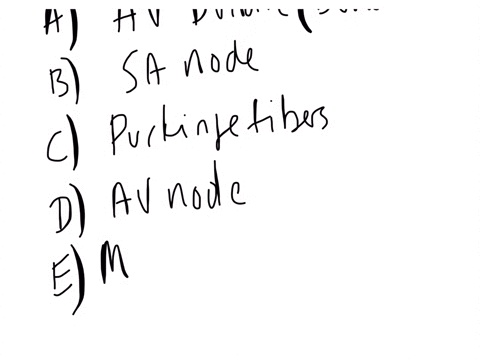 A) AV
B) SA node
C) Purkinje fibers
D) AV node
E) M